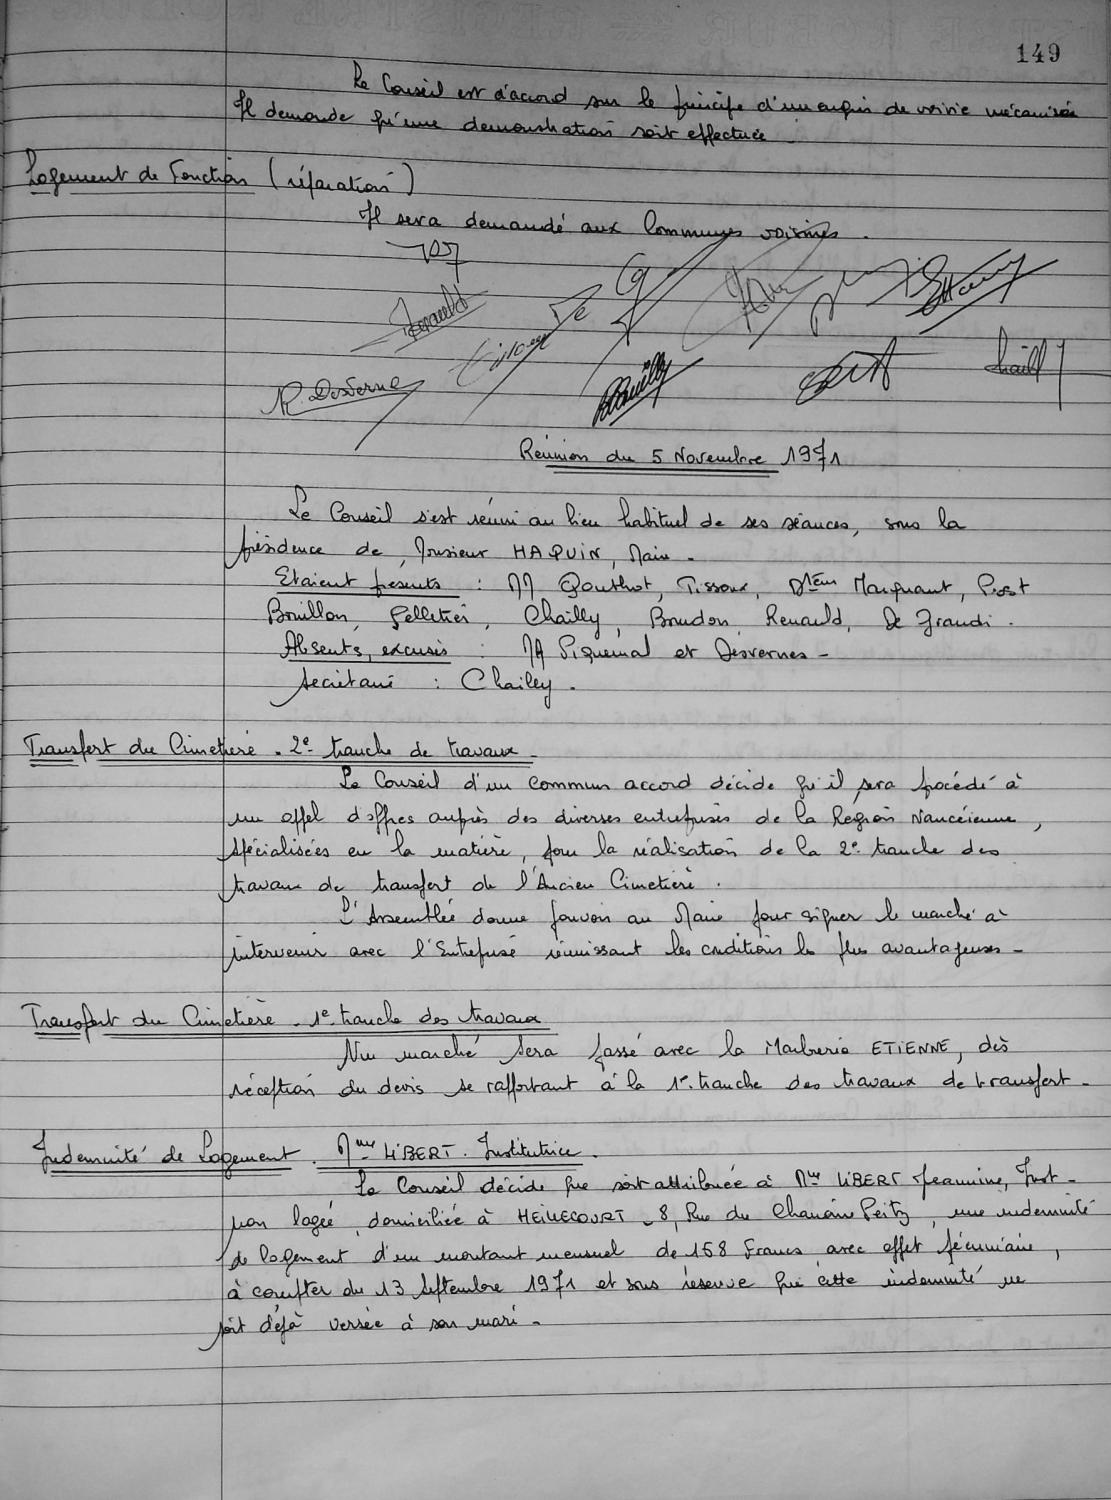 149
Le Conseil est d'accord sur le principe d'un engin de voirie mécanisée
Il demande qu'une démonstration soit effectuée.
Logement de Fonction (réparation)
Il sera demandé aux Communes voisines.
Renauld
R. Desverne
Chailly
Réunion du 5 Novembre 1971
Le Conseil s'est réuni au lieu habituel de ses séances, sous la
présidence de Monsieur HAQUIN, Maire.
Etaient présents : MM Gouthot, Tissoux, Marquant, Piot
Bouillon, Pelletier, Chailly, Boudon, Renauld, De Grandi.
Absents, excusés : MM Piquemal et Desvernes -
Secrétaire : Chailly.
Transfert du Cimetière - 2e tranche de travaux -
Le Conseil d'un commun accord décide qu'il sera procédé à
un appel d'offres auprès des diverses entreprises de la Région Nancéienne,
spécialisées en la matière, pour la réalisation de la 2e tranche des
travaux de transfert de l'Ancien Cimetière.
L'Assemblée donne pouvoir au Maire pour signer le marché à
intervenir avec l'Entreprise réunissant les conditions les plus avantageuses -
Transfert du Cimetière - 1e tranche des travaux
Un marché sera passé avec la Marbrerie ETIENNE, dès
réception du devis se rapportant à la 1e tranche des travaux de transfert -
Indemnité de Logement. Mme LIBERT. Institutrice.
Le Conseil décide que soit attribuée à Mme LIBERT Jeannine, Inst -
non logée, domiciliée à HEILLECOURT - 8, Rue du Chanoine Peitz, une indemnité
de logement d'un montant mensuel de 158 Francs avec effet pécuniaire,
à compter du 13 Septembre 1971 et sous réserve que cette indemnité ne
soit déjà versée à son mari -